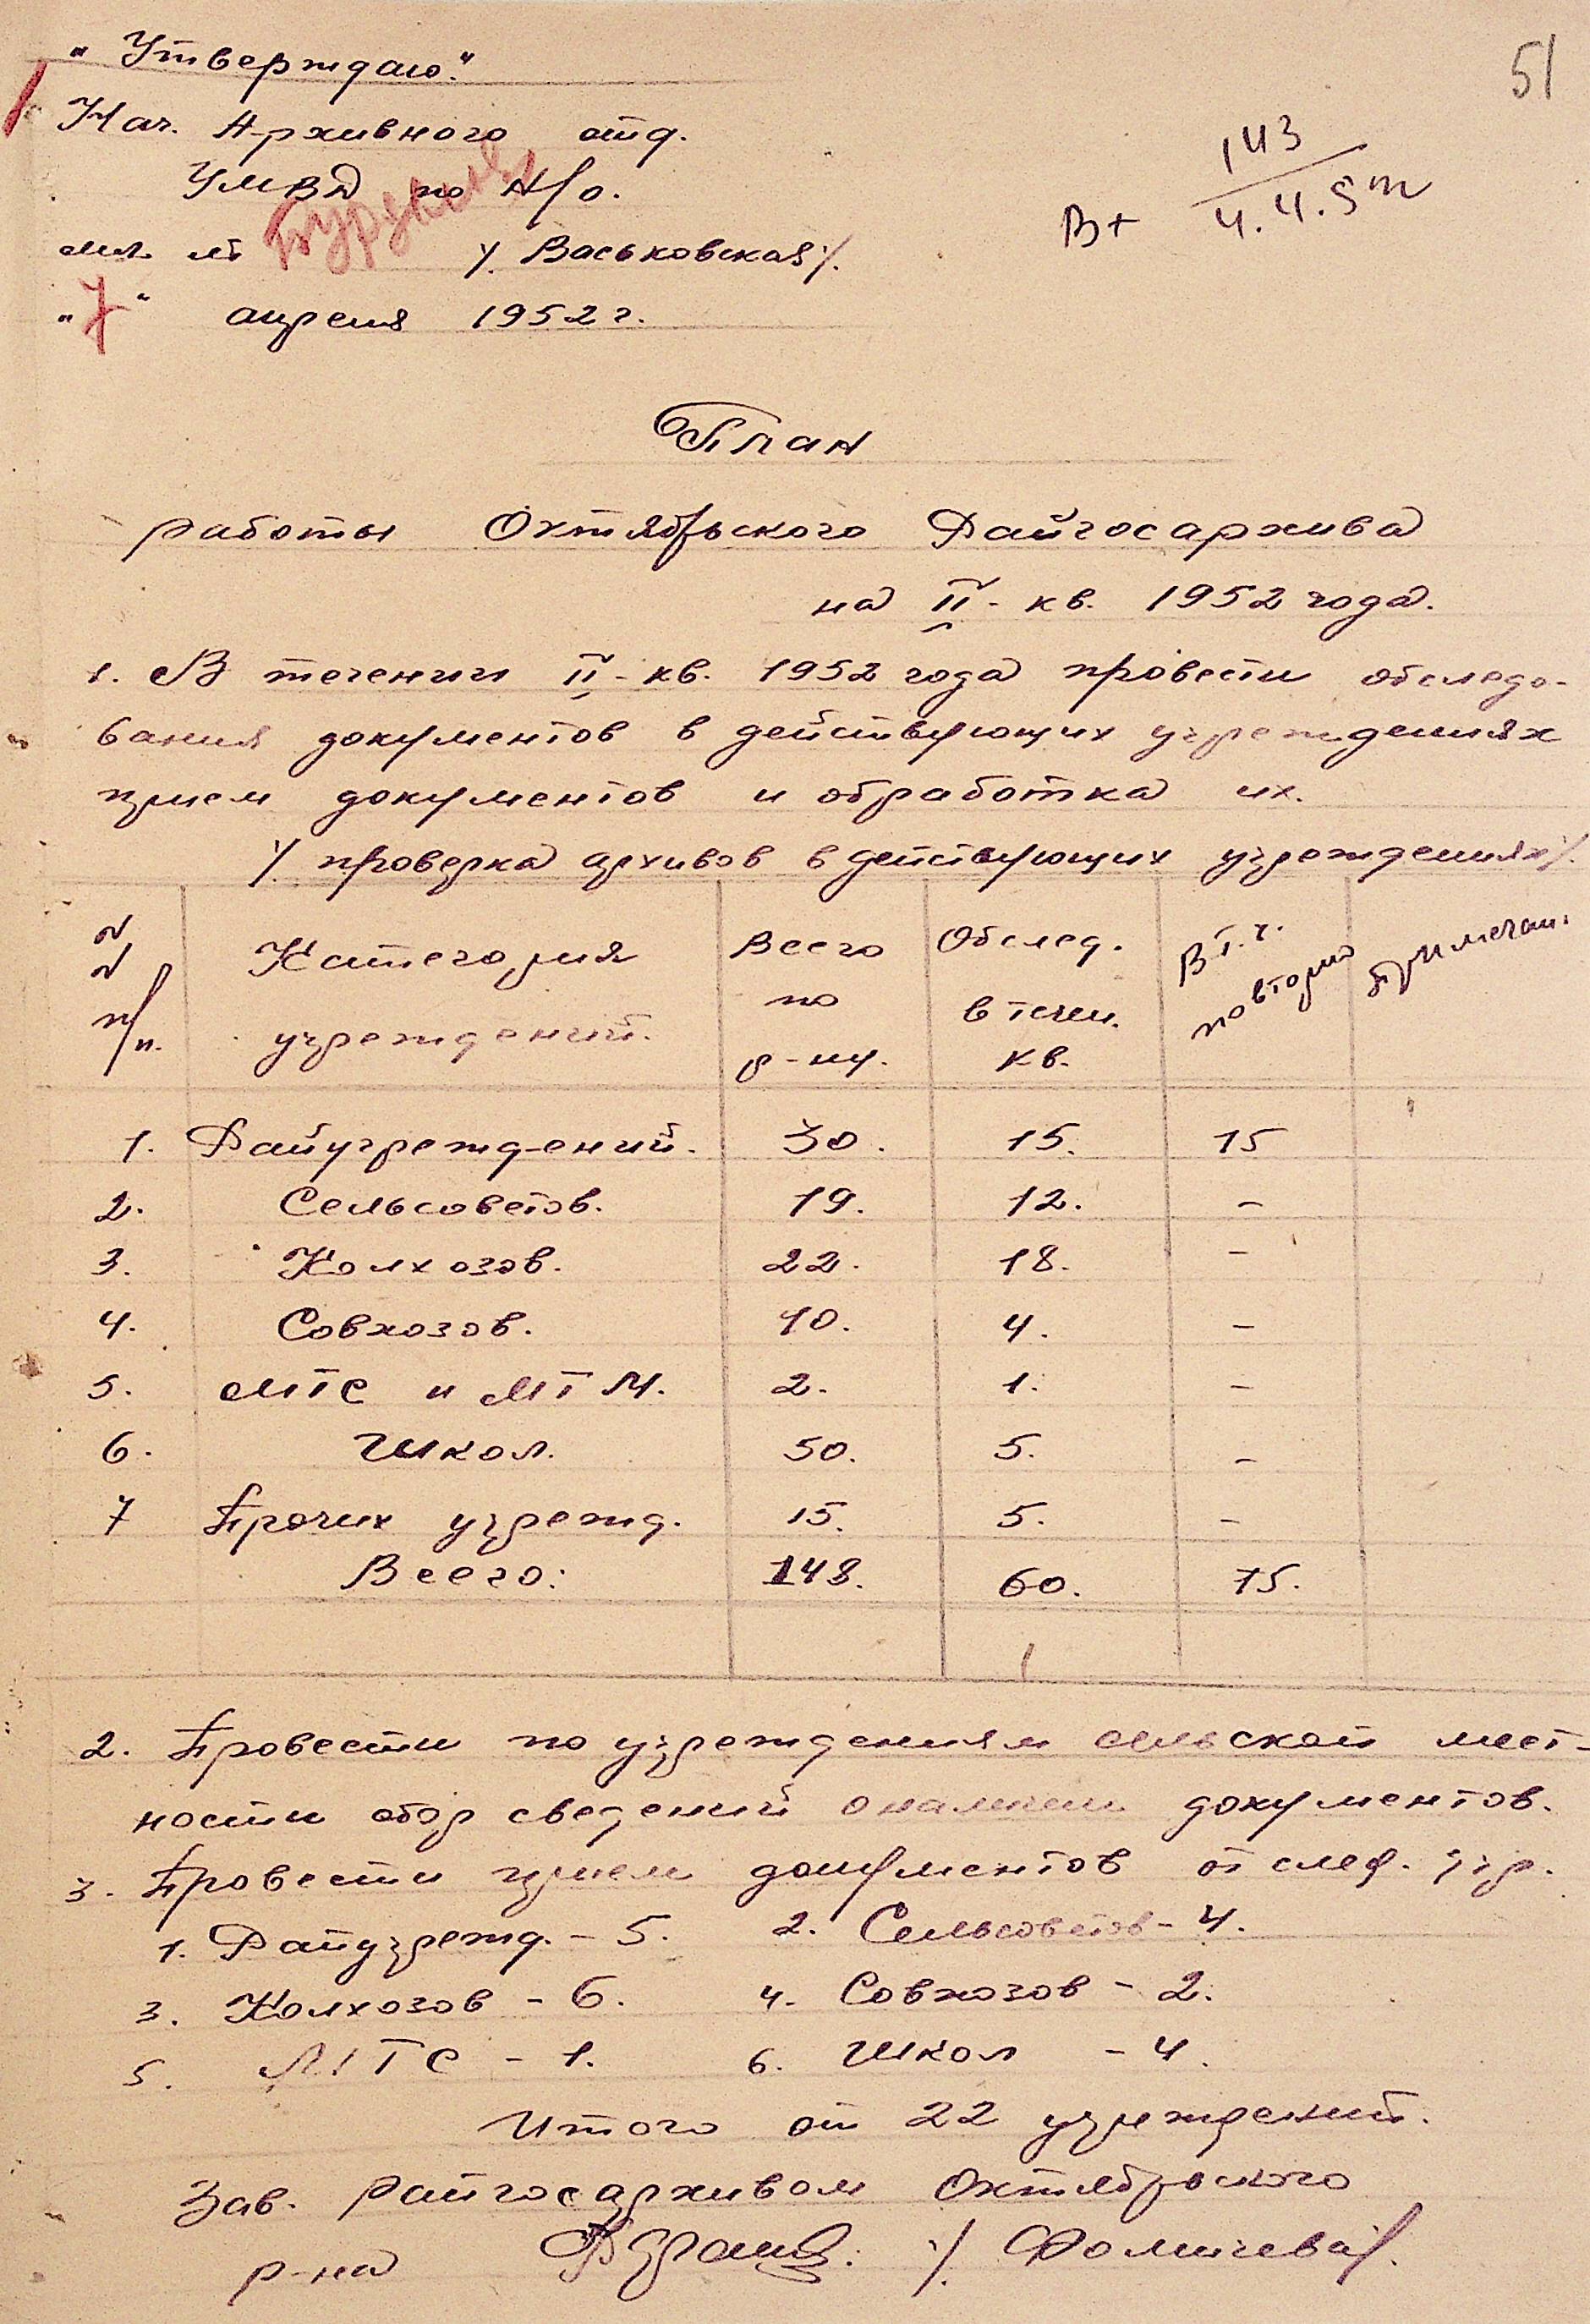 51
„Утверждаю."
Нач. Архивного отд.
УМВД по Н/о.
мл. л-т /. Васьковская/.
„7" апреля 1952 г.
Вх 143
4.4.5
План
работы Октябрьского Райгосархива
на II - кв. 1952 года.
1. В течении II - кв. 1952 года провести обследо-
вания документов в действующих учреждениях
прием документов и обработка их.
/. проверка архивов в действующих учреждениях/.
№№ п/п. Категория учреждений. Всего по р-ну. Обслед. в течен. кв. В т.ч. повторно Примечан.
1. Райучреждений. 30. 15. 15
2. Сельсоветов. 19. 12. -
3. Колхозов. 22. 18. -
4. Совхозов. 10. 4. -
5. МТС и МТМ. 2. 1. -
6. Школ. 50. 5. -
7 Прочих учрежд. 15. 5. -
Всего: 148. 60. 75.
2. Провести по учреждениям сельской мест-
ности сбор сведений о наличии документов.
3. Провести прием документов от след. учр.
1. Райучрежд. - 5. 2. Сельсоветов - 4.
3. Колхозов - 6. 4. Совхозов - 2.
5. МТС - 1. 6. Школ - 4.
Итого от 22 учреждений.
Зав. райгосархивом Октябрьского
р-на /. Фомичева/.